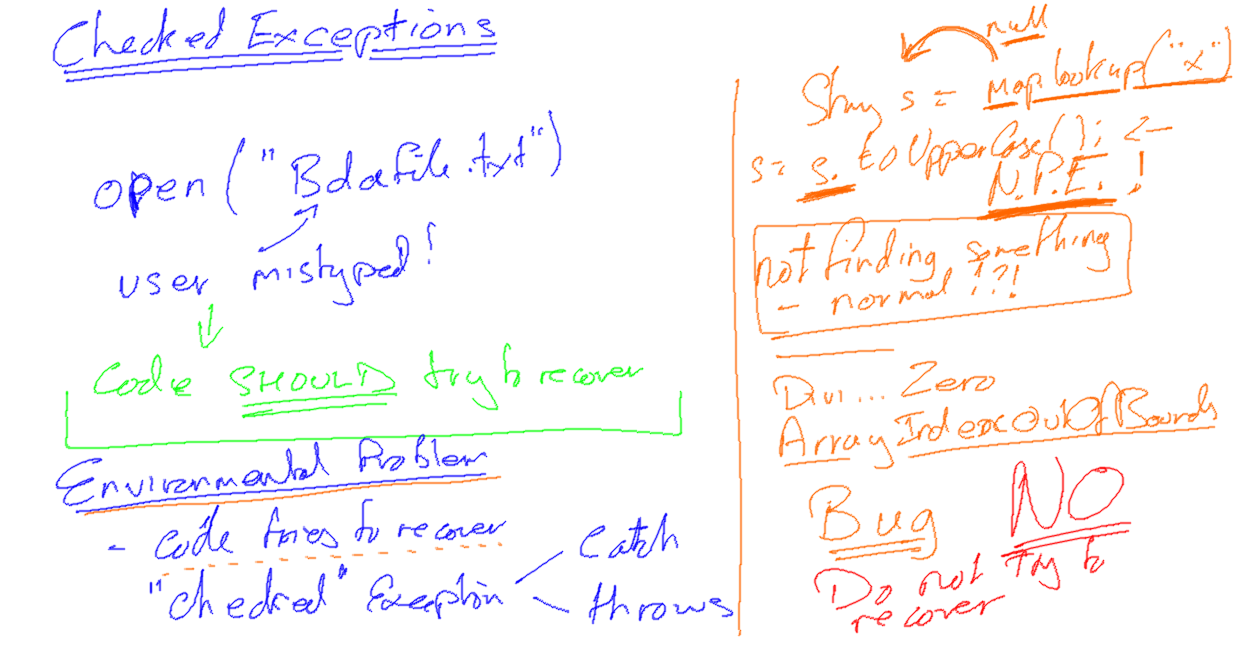 Checked Exceptions
open("Bdafile.txt")
user mistyped!
Code SHOULD try to recover
Environmental Problem
- code tries to recover
"checked" Exception
Catch
throws
null
String s = map.lookup("x")
s = s.toUpperCase(); <-
N.P.E. !
not finding something
- normal!?!
Divi... Zero
ArrayIndexOutOfBounds
Bug
NO
Do not try to
recover